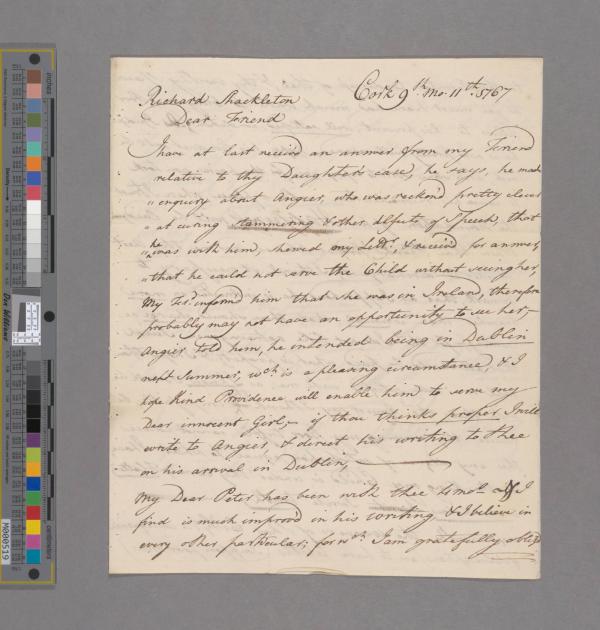 Cork 9th. mo. 11th. 1767
Richard Shackleton
Dear Friend
I have at last receiv'd an answer from my Friend
relative to thy Daughter's case, he says, he made
"enquiry about Angier, who was reckon'd pretty clever
"at curing stammering & other defects of Speech, that
"he was with him, shewed my Lettr., & receiv'd for answer,
"that he could not serve the Child without seeing her,
My Frd. inform'd him that she was in Ireland, therefore
probably may not have an opportunity to see her,—
Angier told him, he intended being in Dublin
next Summer, wch. is a pleasing circumstance, & I
hope Kind Providence will enable him to serve my
Dear innocent Girl,— if thou thinks proper I will
write to Angier, & direct his writing to thee
on his arrival in Dublin,
My Dear Peter has been with thee mo. & I
find is much improv'd in his writing & I believe in
every other particular; for wch. I am gratefully oblig'd
inches
centimeters
Density
Don Williams
M000519